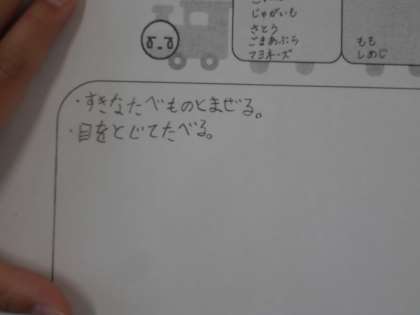 じゃがいも
さとう
ごまあぶら
マヨネーズ
もも
しめじ
・すきなたべものとまぜる。
・目をとじてたべる。